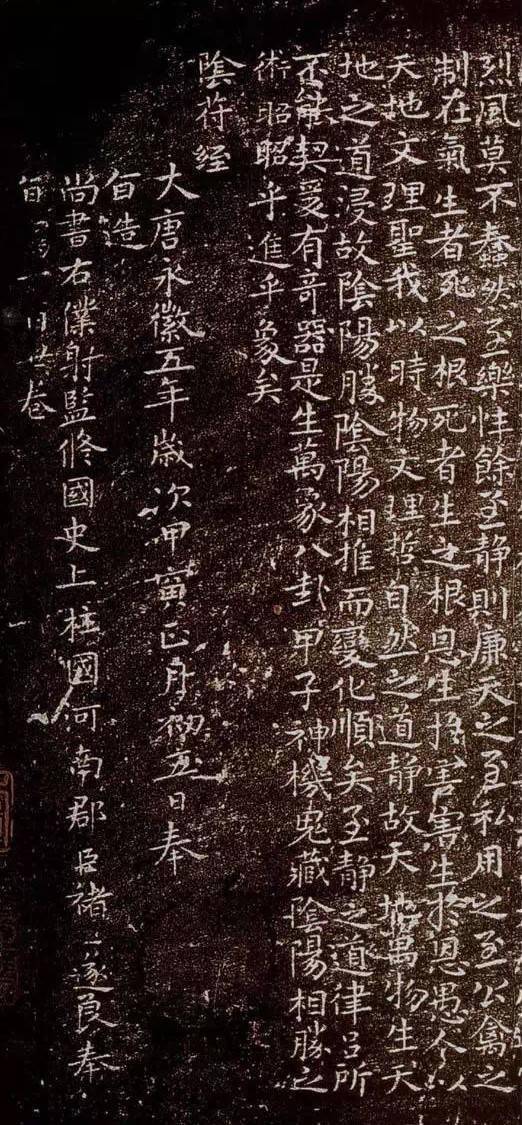 烈風莫不蠢然至樂性餘至静則廉天之至私用之至公禽之
制在氣生者死之根死者生之根恩生扵害害生扵恩愚人以
天地文理聖我以時物文理哲自然之道静故天地萬物生天
地之道浸故陰陽勝陰陽相推而變化順矣至静之道律吕所
不能契爰有奇器是生萬象八卦甲子神機鬼藏陰陽相勝之
術昭昭乎進乎象矣
陰符经
大唐永徽五年歳次甲寅正月初五日奉
旨造
尚書右僕射監修國史上柱國河南郡臣禇遂良奉
旨寫一日廿卷